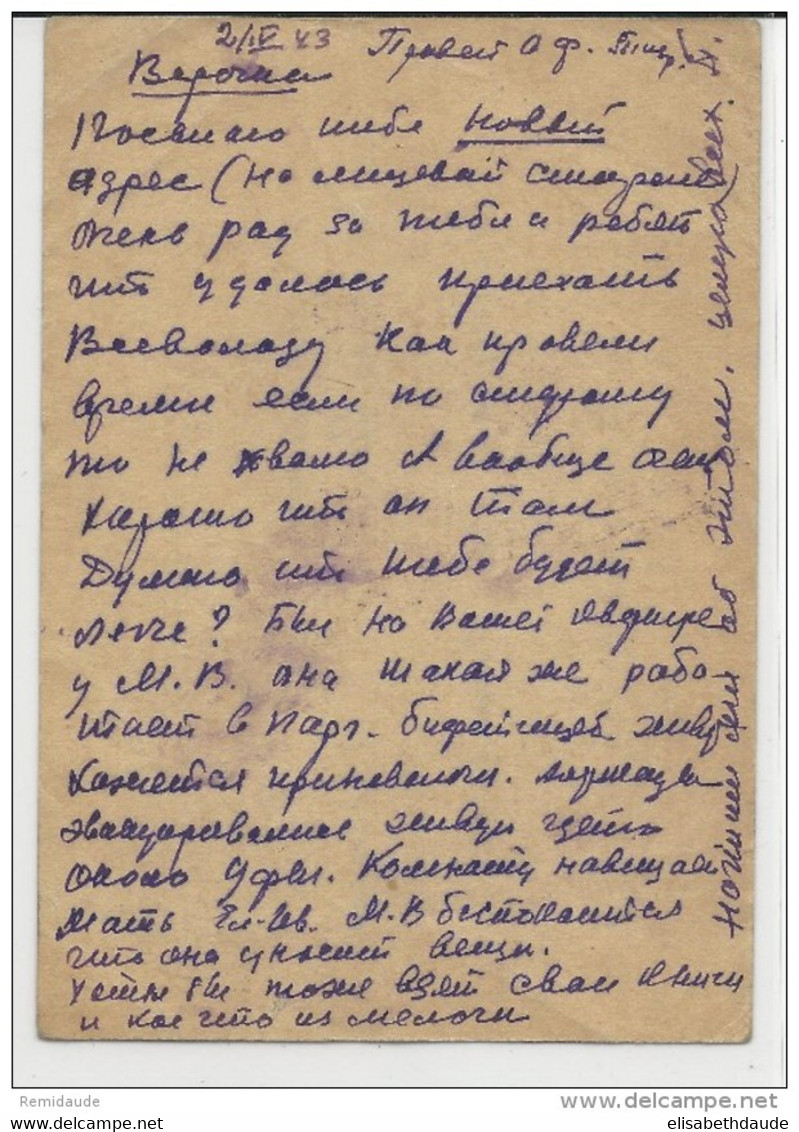 2/IV 43 Привет О. Ф.
Верочка
Посылаю тебе новый
адрес (на лицевой стороне)
Очень рад за тебя и ребят
что удалось приехать
Всеволоду Как провели
время если по старому
то не хвалю А вообще
Хорошо что он там
Думаю что тебе будет
легче? Был на Вашей квартире
у М. В. она такая же рабо
тает в парт. буфетчицей живут
кажется припеваючи.
эвакуировались живут где то
около Уфы. Комнату навещает
Мать Ел-Ив. М. В беспокоится
что она уносит вещи.
Хотел бы тоже взять свои книги
и кое что из мелочи
напиши мне об этом. целую всех.
Remidaude
delcampe.net
elisabethdaude